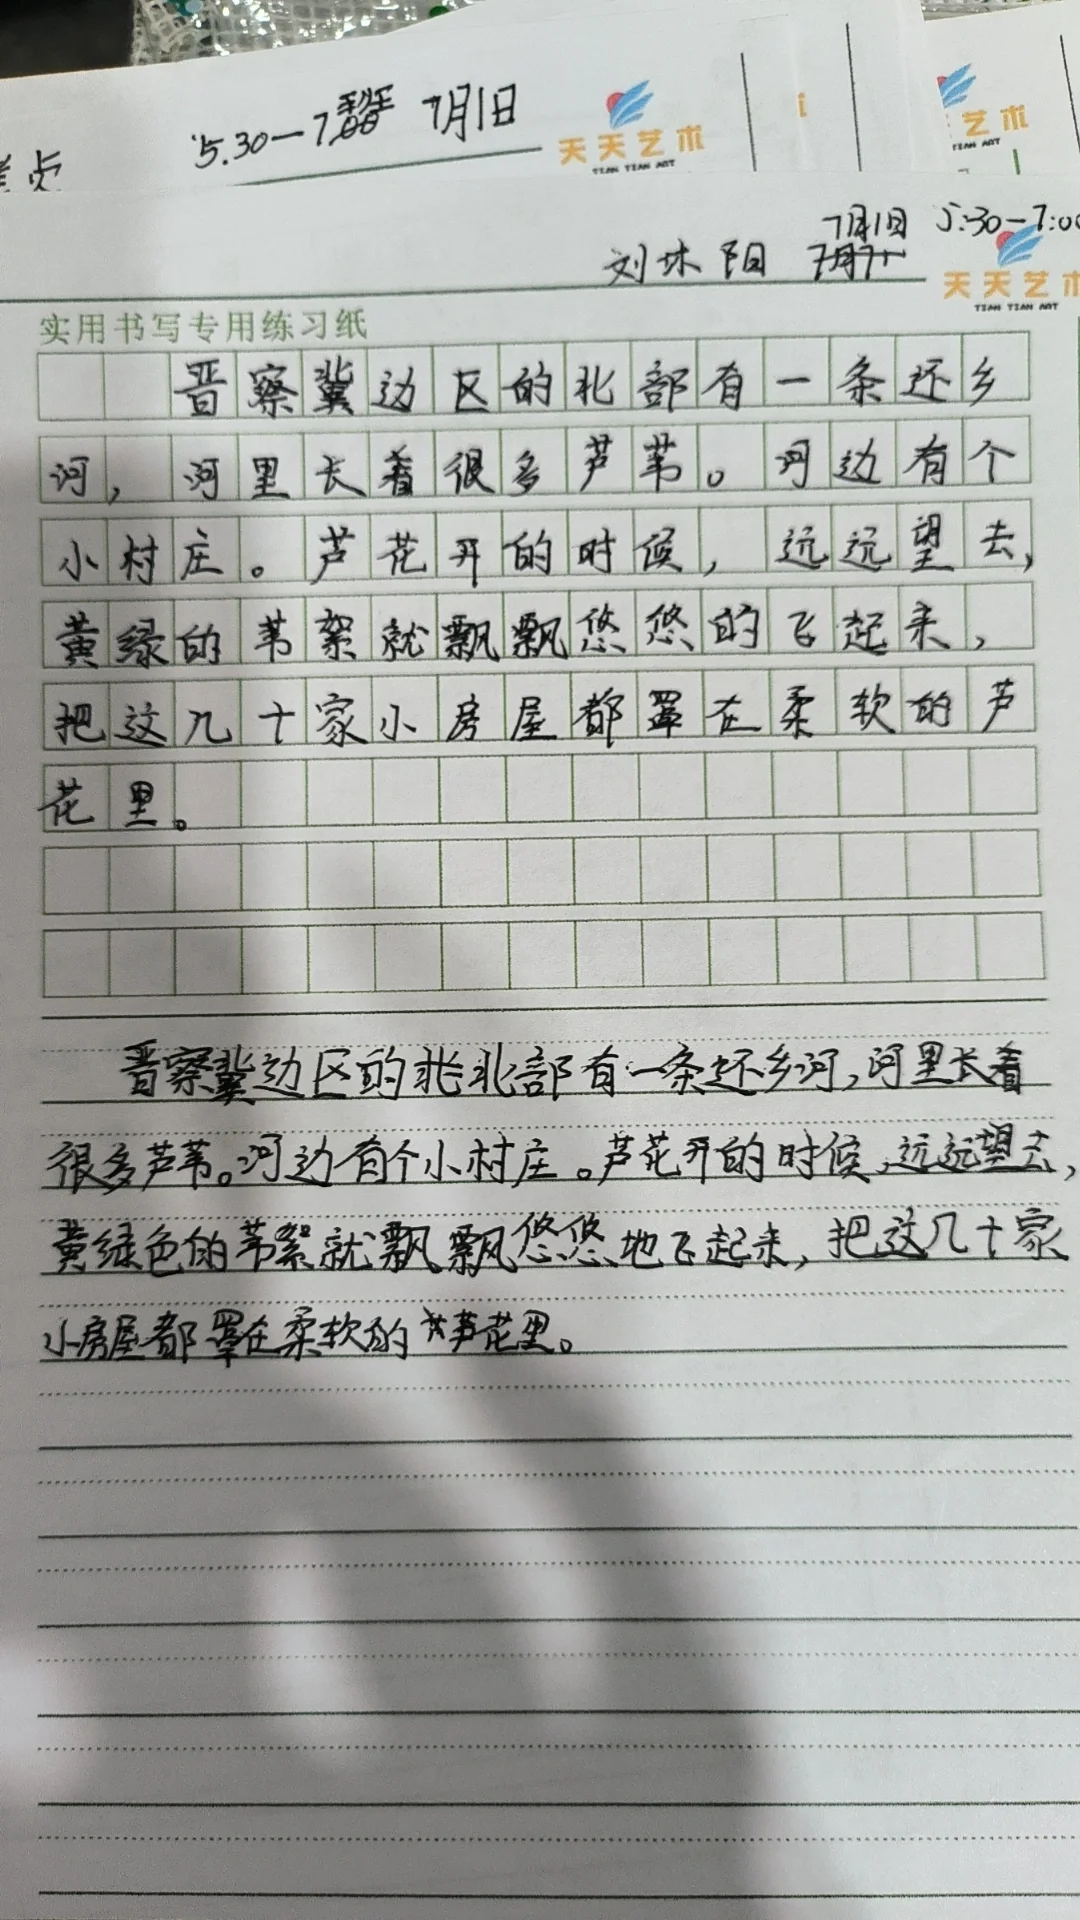 5.30—7.00 7月1日
天天艺术
TIAN TIAN ART
艺术
TIAN ART
7月1日 5:30—7:00
刘沐阳
天天艺术
TIAN TIAN ART
实用书写专用练习纸
晋察冀边区的北部有一条还乡
河，河里长着很多芦苇。河边有个
小村庄。芦花开的时候，远远望去，
黄绿的苇絮就飘飘悠悠的飞起来，
把这几十家小房屋都罩在柔软的芦
花里。
晋察冀边区的北北部有一条还乡河，河里长着
很多芦苇。河边有个小村庄。芦花开的时候，远远望去，
黄绿色的苇絮就飘飘悠悠地飞起来，把这几十家
小房屋都罩在柔软的芦花里。